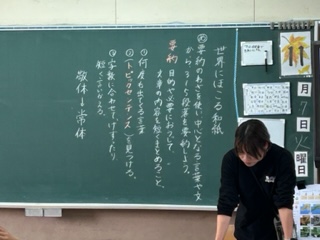 世界にほこる和紙
め 要約のわざを使い、中心となる言葉や文
から3、5段落を要約しよう。
要約 目的や必要におうじて、
文章の内容を短くまとめること。
①何度も出てくる言葉
②「トピックセンテンス」を見つける。
③字数に合わせて、けずったり、
短くしよう。
敬体→常体
11
月
7
日
火
曜
日